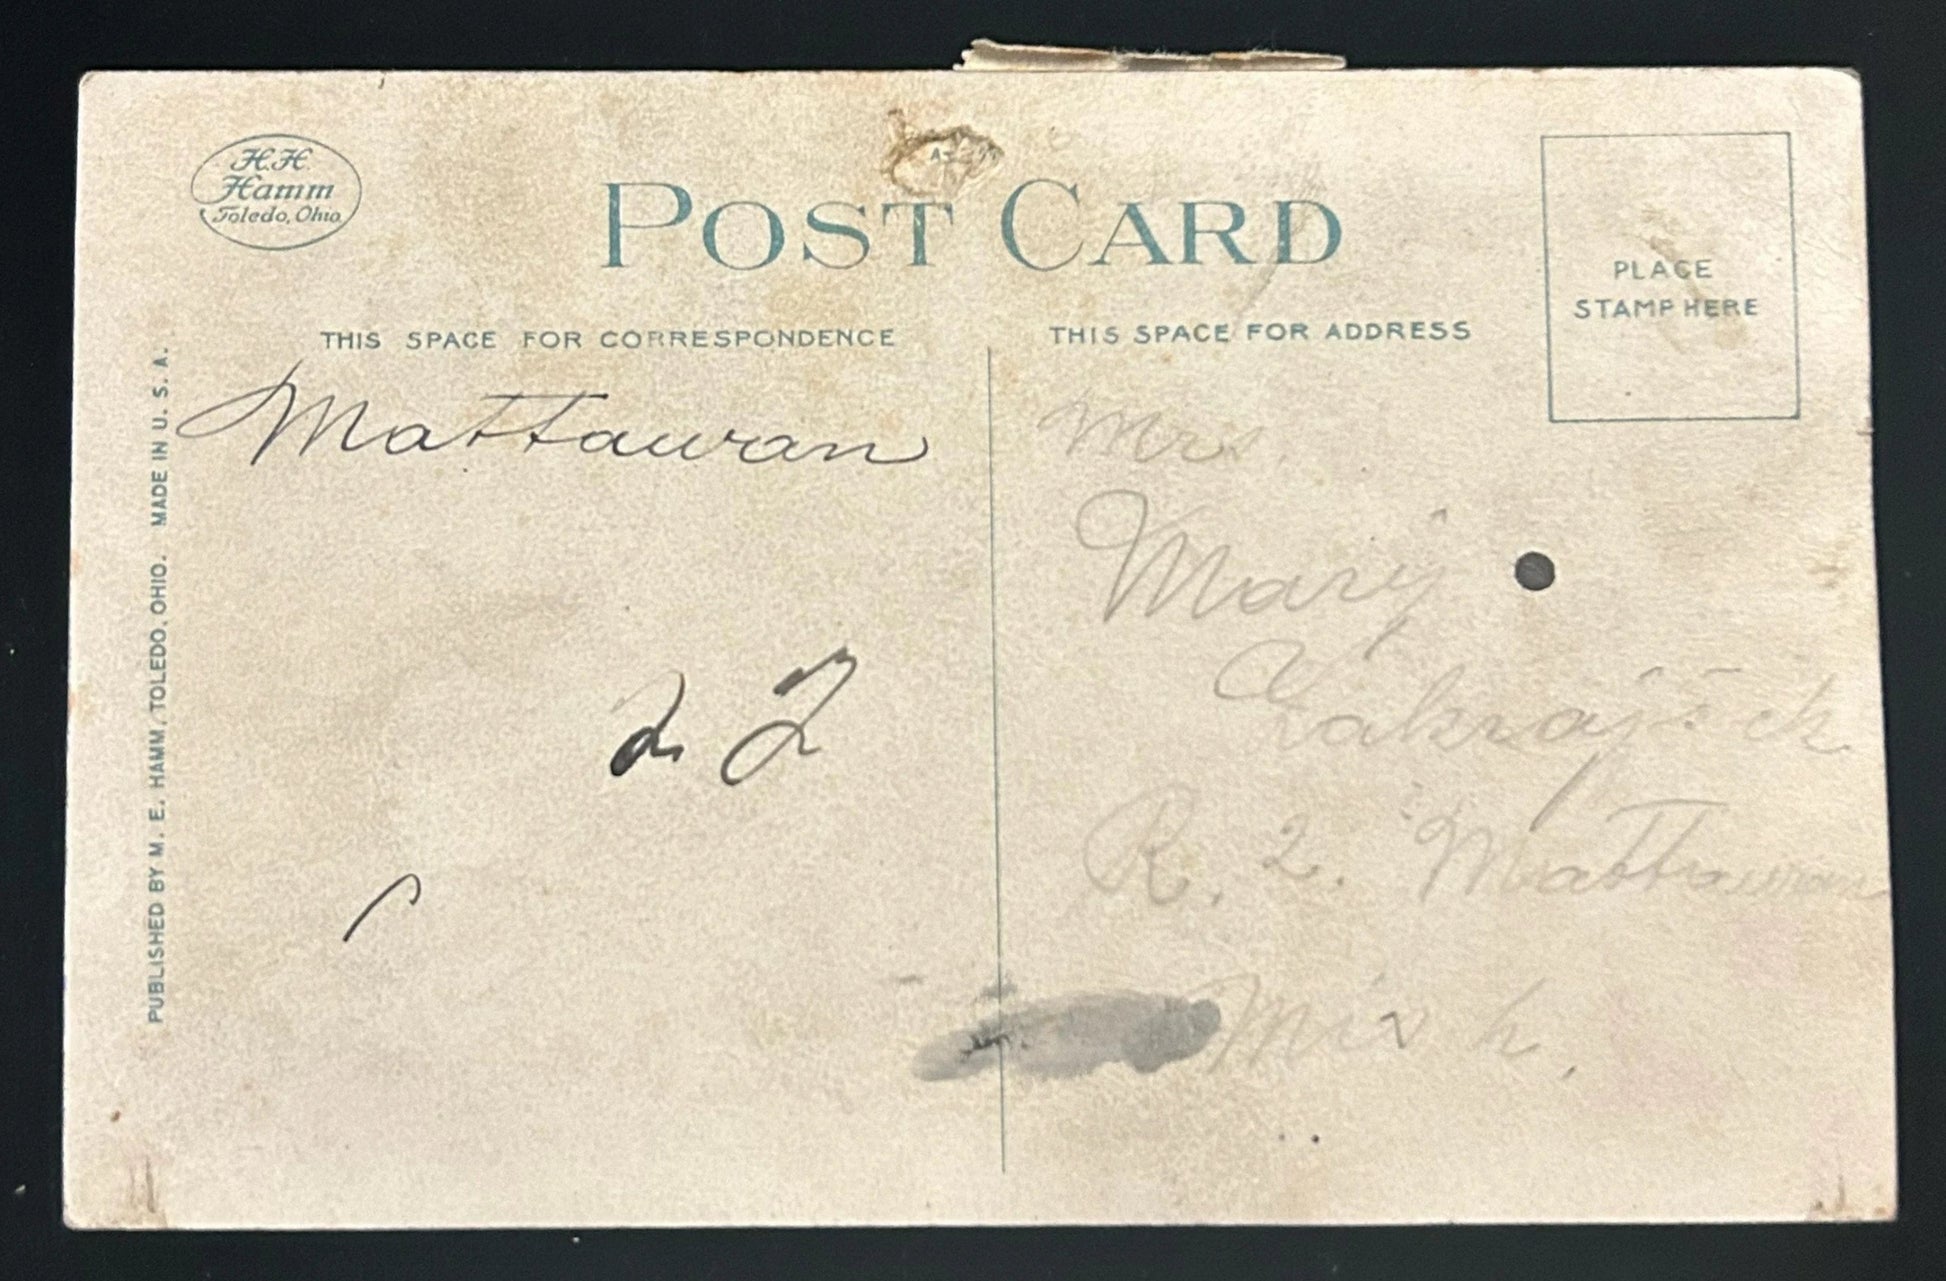 H.H.
Hamm
Toledo, Ohio
POST CARD
PLACE
STAMP HERE
THIS SPACE FOR CORRESPONDENCE
THIS SPACE FOR ADDRESS
Mattawan
Mrs.
Mary
R. 2. Mattawan
Mich.
PUBLISHED BY M. E. HAMM, TOLEDO, OHIO. MADE IN U. S. A.